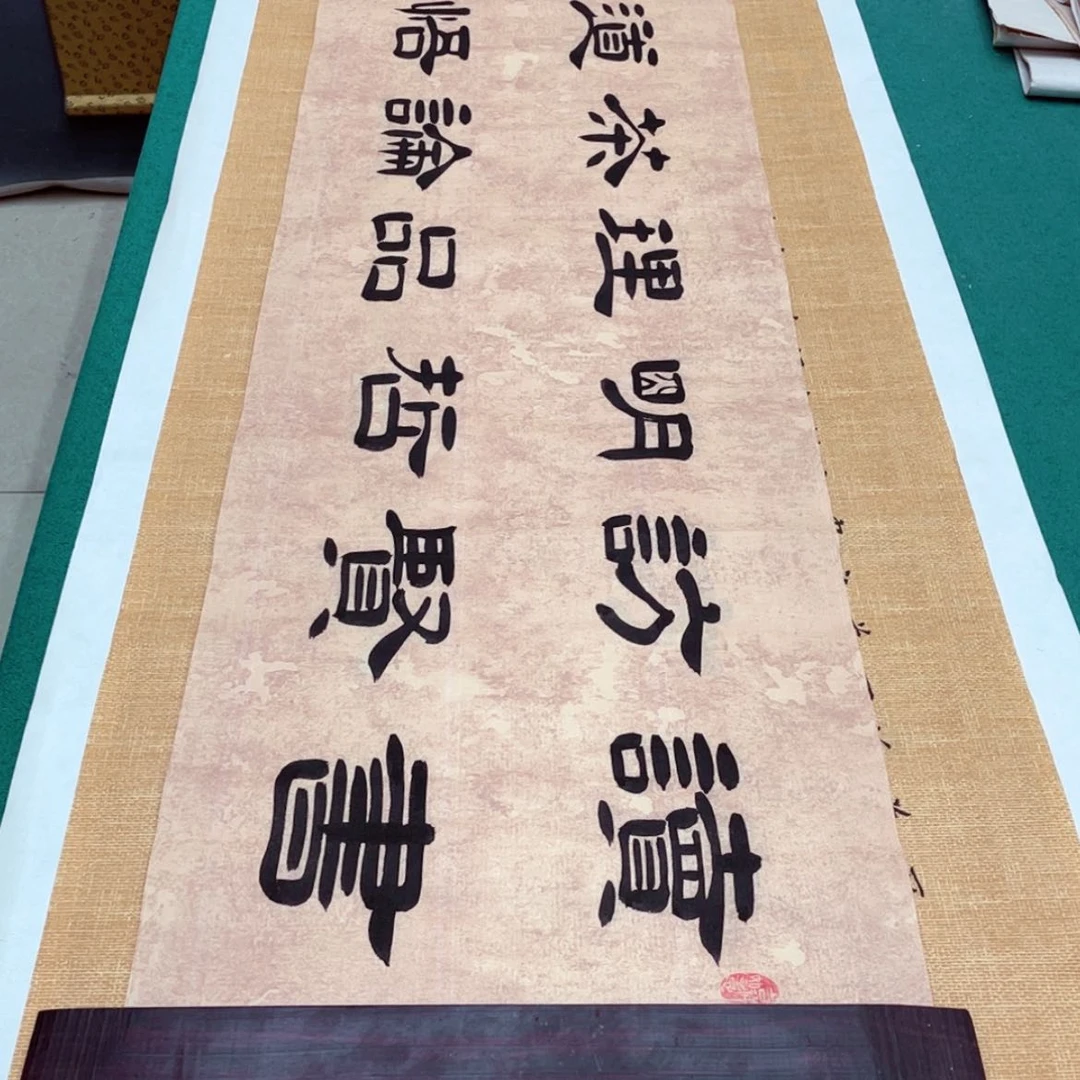 讀書
訪賢
明哲
理品
茶論
悟